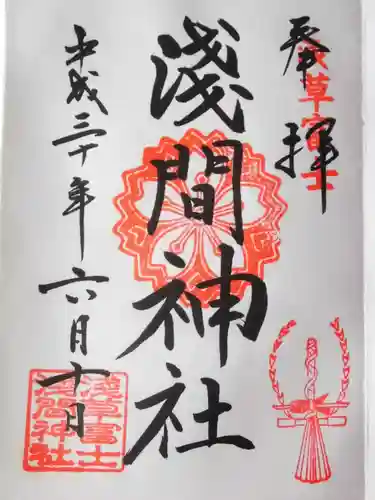 奉拝
浅草富士
淺間神社
平成三十年六月十日
浅草富士
浅間神社